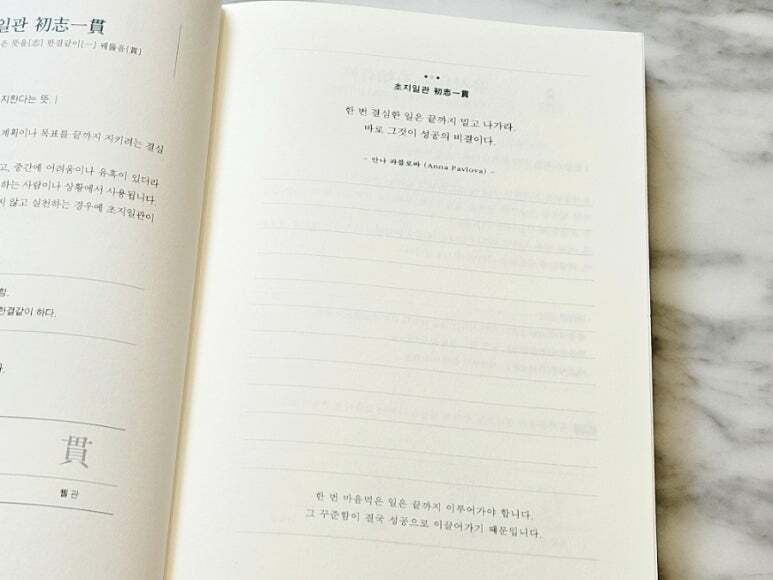 일관 初志一貫
은 뜻을[志] 한결같이[一] 꿰뚫음[貫]
지한다는 뜻. |
계획이나 목표를 끝까지 지키려는 결심
고, 중간에 어려움이나 유혹이 있더라
하는 사람이나 상황에서 사용됩니다.
않고 실천하는 경우에 초지일관이
함.
한결같이 하다.
貫
꿸 관
초지일관 初志一貫
한 번 결심한 일은 끝까지 밀고 나가라.
바로 그것이 성공의 비결이다.
- 안나 파블로바 (Anna Pavlova) -
한 번 마음먹은 일은 끝까지 이루어가야 합니다.
그 꾸준함이 결국 성공으로 이끌어가기 때문입니다.